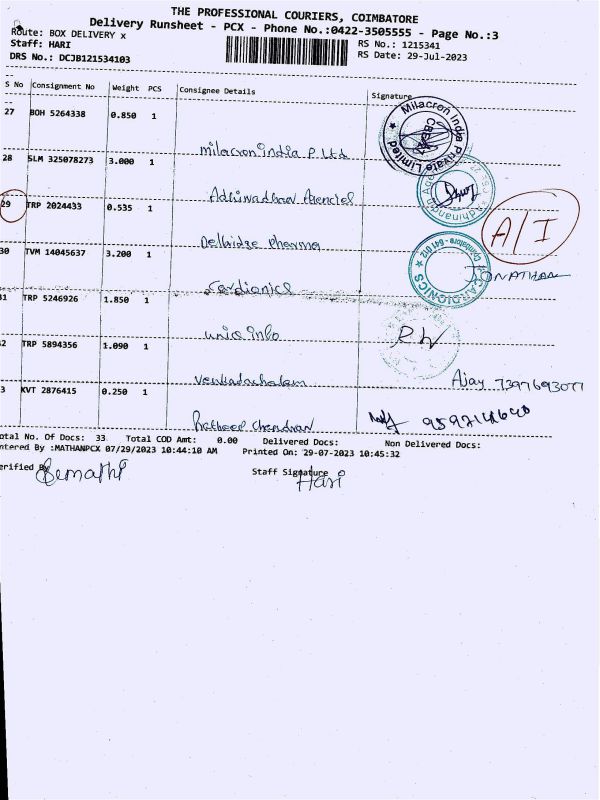 THE PROFESSIONAL COURIERS, COIMBATORE
Delivery Runsheet - PCX - Phone No.:0422-3505555 - Page No.:3
Route: BOX DELIVERY x
RS No.: 1215341
Staff: HARI
RS Date: 29-Jul-2023
DRS No.: DCJB121534103
S No Consignment No Weight PCS Consignee Details Signature
27 BOH 5264338 0.850 1
Milacron India P Ltd
Milacron India Private Limited
28 SLM 325078273 3.000 1
Agencies
29 TRP 2024433 0.535 1
Delbidge Pharma
A/I
30 TVM 14045637 3.200 1
Cardionics
CARDIONICS
Coimbatore - 641 012
JONATHAN
31 TRP 5246926 1.850 1
unic info
32 TRP 5894356 1.090 1
Venkadachalam
Ajay
33 KVT 2876415 0.250 1
Chandran
Total No. Of Docs: 33 Total COD Amt: 0.00 Delivered Docs: Non Delivered Docs:
Entered By :MATHANPCX 07/29/2023 10:44:10 AM Printed On: 29-07-2023 10:45:32
Verified By
Staff Signature
Hari